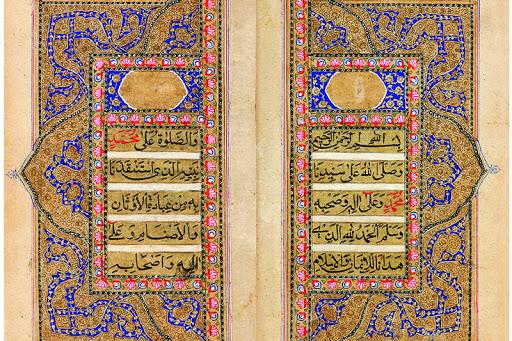 بسم الله الرحمن الرحيم
وصلى الله على سيدنا
محمد وعلى اله وصحبه
وسلم الحمد لله الذي
هدانا للايمان والاسلام
والصلوة على محمد
نبيه الذي استنقذنا
به من عبادة الاوثان
والاصنام وعلى
اله واصحابه